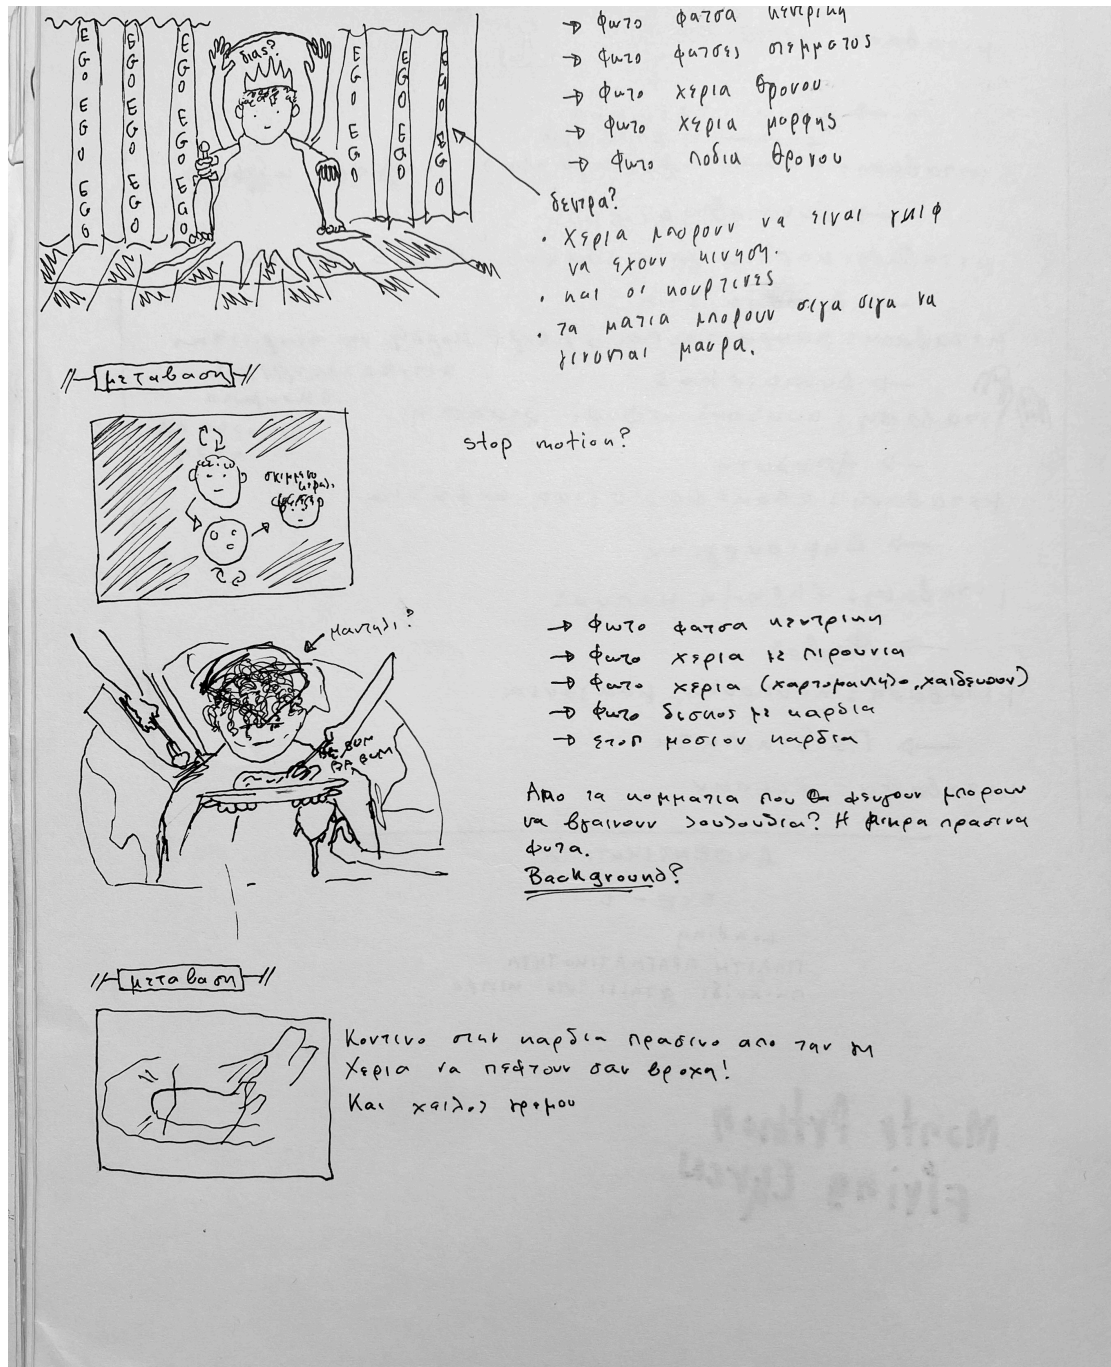 EGO EGO EGO
EGO EGO EGO
EGO EGO EGO
EGO EGO
EGO EGO
EGO EGO
διας?
→ Φωτο φατσα κεντρικη
→ Φωτο φατσες στεμματος
→ Φωτο χερια θρονου
→ Φωτο χερια μορφης
→ Φωτο ποδια θρονου
δεντρα?
· Χερια μπορουν να ειναι γκιφ
να εχουν κινηση.
· και οι κουρτινες
· τα ματια μπορουν σιγα σιγα να
γινονται μαυρα.
μεταβαση
stop motion?
σκιμμενο
κεφαλι
μαντηλι?
→ Φωτο φατσα κεντρικη
→ Φωτο χερια με πιρουνια
→ Φωτο χερια (χαρτομαντηλο, χαιδευουν)
→ Φωτο δισκος με καρδια
→ στοπ μοσιον καρδια
BA BUM
BA BUM
Απο τα κομματια που θα φευγουν μπορουν
να βγαινουν λουλουδια? Η μικρα πρασινα
φυτα.
Background?
μεταβαση
Κοντινο στην καρδια πρασινο απο την γη
Χερια να πεφτουν σαν βροχη!
Και χειλος γκρεμου